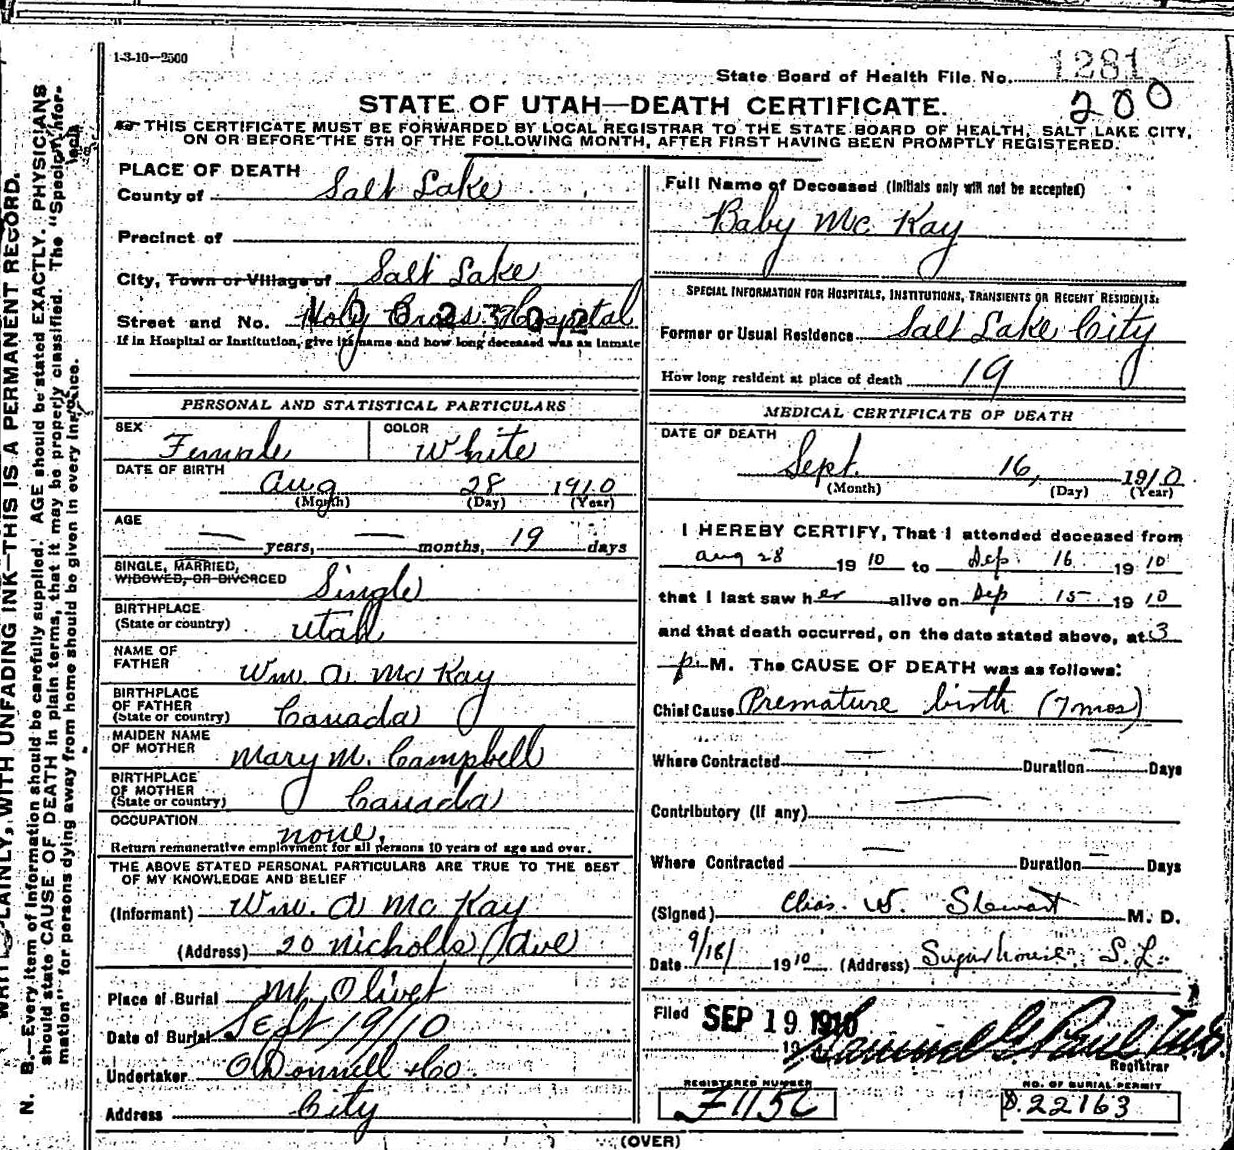 1-3-10—2500
State Board of Health File No. 1281
200
STATE OF UTAH—DEATH CERTIFICATE.
THIS CERTIFICATE MUST BE FORWARDED BY LOCAL REGISTRAR TO THE STATE BOARD OF HEALTH, SALT LAKE CITY,
ON OR BEFORE THE 5TH OF THE FOLLOWING MONTH, AFTER FIRST HAVING BEEN PROMPTLY REGISTERED.
WRITE PLAINLY, WITH UNFADING INK—THIS IS A PERMANENT RECORD.
N. B.—Every item of information should be carefully supplied. AGE should be stated EXACTLY. PHYSICIANS
should state CAUSE OF DEATH in plain terms, that it may be properly classified. The "Special Infor-
mation" for persons dying away from home should be given in every instance.
PLACE OF DEATH
County of Salt Lake
Precinct of
City, Town or Village of Salt Lake
Street and No. Holy Cross Hospital
If in Hospital or Institution, give its name and how long deceased was an inmate
PERSONAL AND STATISTICAL PARTICULARS
SEX Female COLOR White
DATE OF BIRTH
Aug 28 1910
(Month) (Day) (Year)
AGE
— years, — months, 19 days
SINGLE, MARRIED,
WIDOWED, OR DIVORCED Single
BIRTHPLACE
(State or country) Utah
NAME OF
FATHER Wm. A. McKay
BIRTHPLACE
OF FATHER
(State or country) Canada
MAIDEN NAME
OF MOTHER Mary M. Campbell
BIRTHPLACE
OF MOTHER
(State or country) Canada
OCCUPATION none.
Return remunerative employment for all persons 10 years of age and over.
THE ABOVE STATED PERSONAL PARTICULARS ARE TRUE TO THE BEST
OF MY KNOWLEDGE AND BELIEF
(Informant) Wm. A McKay
(Address) 20 Nicholls Ave
Place of Burial Mt Olivet
Date of Burial Sept 19/10
Undertaker O'Donnell & Co.
Address City
Full Name of Deceased (Initials only will not be accepted)
Baby McKay
SPECIAL INFORMATION FOR HOSPITALS, INSTITUTIONS, TRANSIENTS OR RECENT RESIDENTS:
Former or Usual Residence Salt Lake City
How long resident at place of death 19
MEDICAL CERTIFICATE OF DEATH
DATE OF DEATH
Sept. 16, 1910
(Month) (Day) (Year)
I HEREBY CERTIFY, That I attended deceased from
Aug 28 1910 to Sep 16 1910
that I last saw her alive on Sep 15 1910
and that death occurred, on the date stated above, at 3
p. M. The CAUSE OF DEATH was as follows:
Chief Cause Premature birth (7 mos)
Where Contracted — Duration — Days
Contributory (if any) —
Where Contracted — Duration — Days
(Signed) Chas. W. Stewart M. D.
Date 9/18/ 1910 (Address) Sugarhouse, S.L.
Filed SEP 19 1910
19
Registrar
REGISTERED NUMBER
NO. OF BURIAL PERMIT
22163
(OVER)